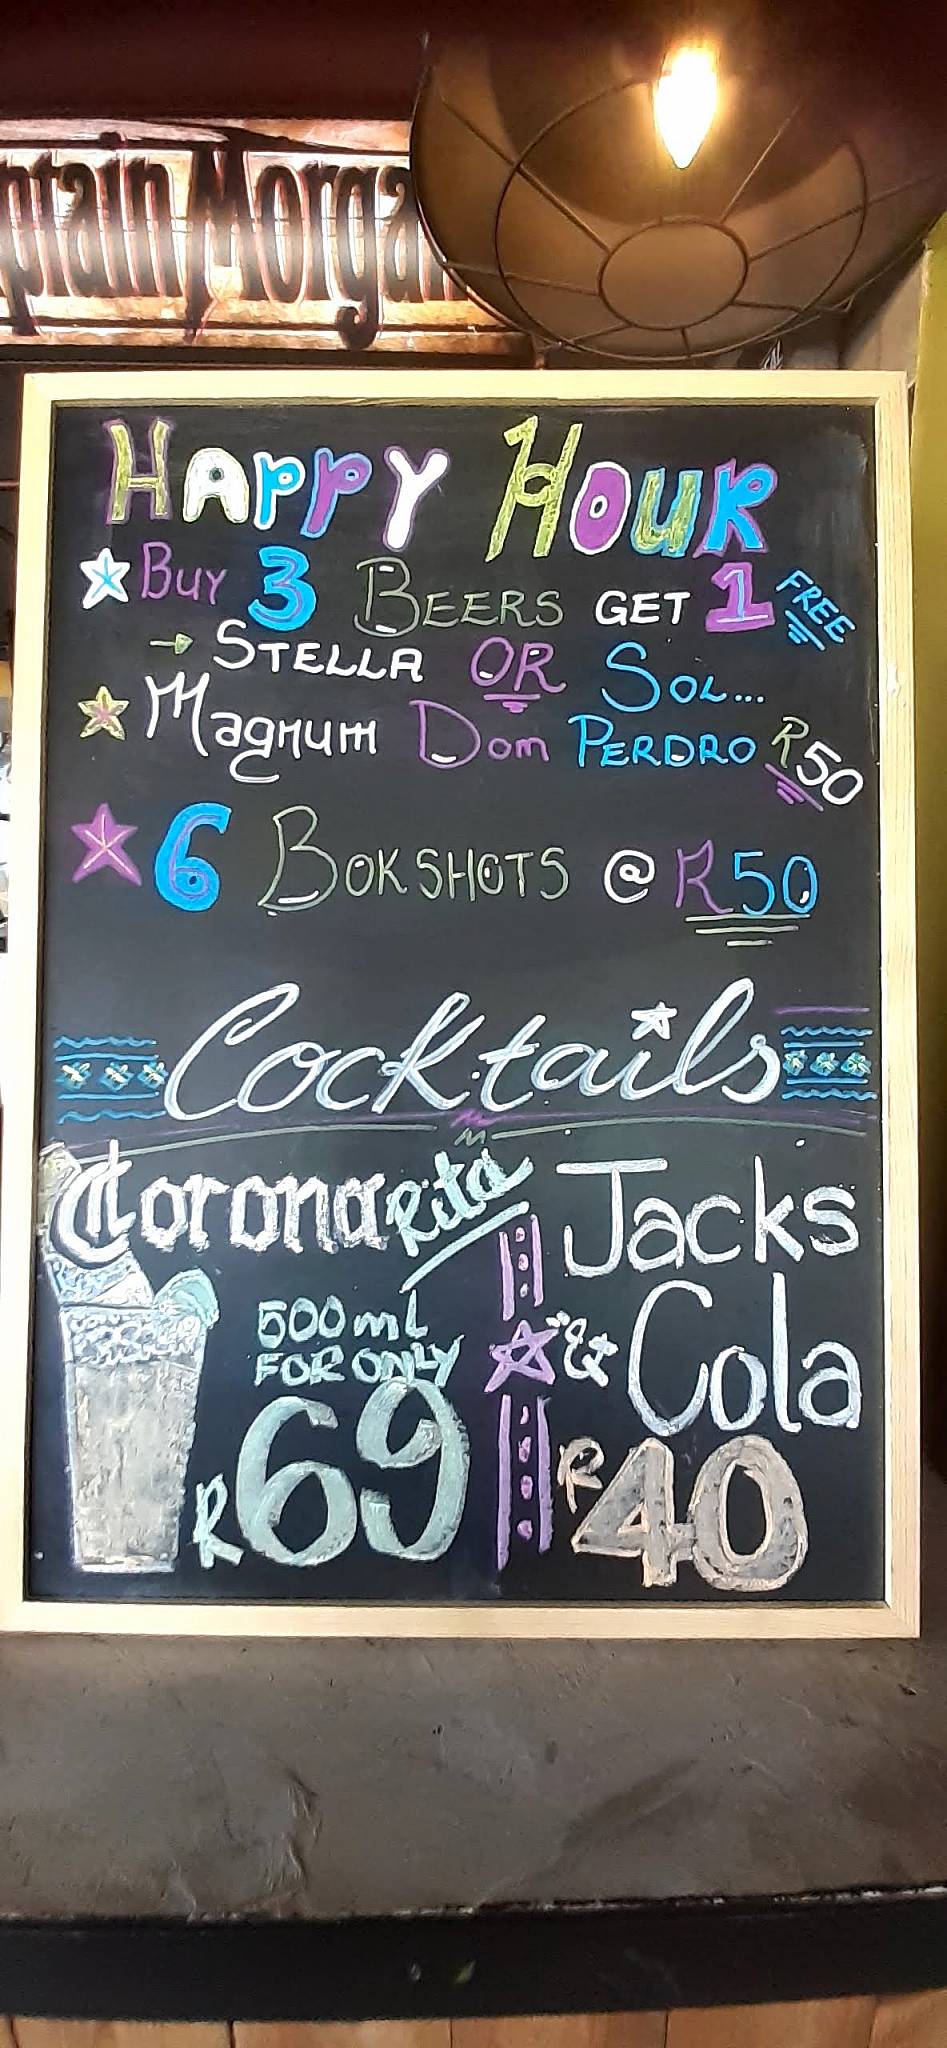 ptain Morga
HAPPY HOUR
BUY 3 BEERS GET 1 FREE
→ STELLA OR SOL...
Magnum Dom PERDRO R50
6 BOKSHOTS @ R50
Cocktails
CoronaRita
500ml
FOR ONLY
R69
Jacks
& Cola
R40